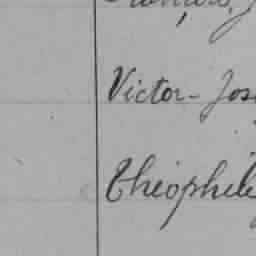 Victor-Jos
Théophile